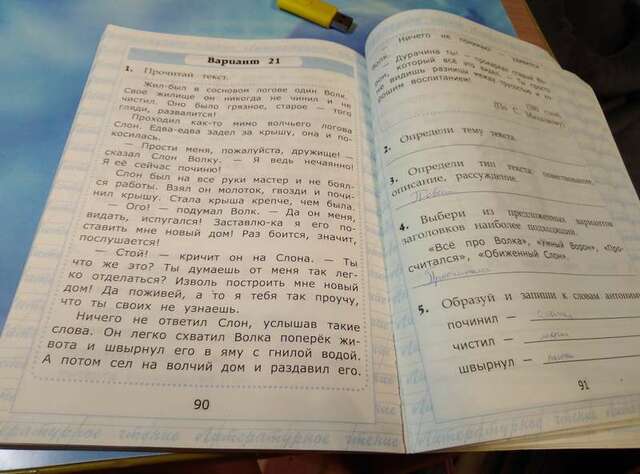 Вариант 21
1. Прочитай текст.
Жил-был в сосновом логове один Волк.
Свое жилище он никогда не чинил и не
чистил. Оно было грязное, старое — того
гляди, развалится!
Проходил как-то мимо волчьего логова
Слон. Едва-едва задел за крышу, она и по-
косилась.
— Прости меня, пожалуйста, дружище! —
сказал Слон Волку. — Я ведь нечаянно!
Я её сейчас починю!
Слон был на все руки мастер и не боял-
ся работы. Взял он молоток, гвозди и почи-
нил крышу. Стала крыша крепче, чем была.
— Ого! — подумал Волк. — Да он меня,
видать, испугался! Заставлю-ка я его по-
ставить мне новый дом! Раз боится, значит,
послушается!
— Стой! — кричит он на Слона. — Ты
что же это? Ты думаешь от меня так лег-
ко отделаться? Изволь построить мне новый
дом! Да поживей, а то я тебя так проучу,
что ты своих не узнаешь.
Ничего не ответил Слон, услышав такие
слова. Он легко схватил Волка поперёк жи-
вота и швырнул его в яму с гнилой водой.
А потом сел на волчий дом и раздавил его.
90
— Ничего не понимаю! —
Волк.
— Дурачина ты! — старый Во-
рон, который всё это видел. — Ты просто
не видишь разницы между трусостью и хо-
рошим воспитанием!
(По С. Михалкову)
2. Определи тему текста.
3. Определи тип текста: повествование,
описание, рассуждение.
4. Выбери из предложенных вариантов
заголовков наиболее подходящий.
«Всё про Волка», «Умный Ворон», «Про-
считался», «Обиженный Слон».
5. Образуй и запиши к словам антонимы
починил —
чистил —
швырнул —
91
Литературное чтение